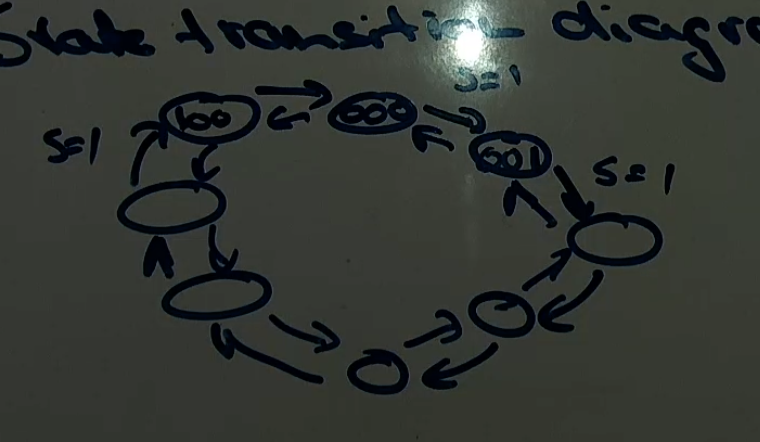 State transition diagra
S=1
100
000
001
S=1
S=1